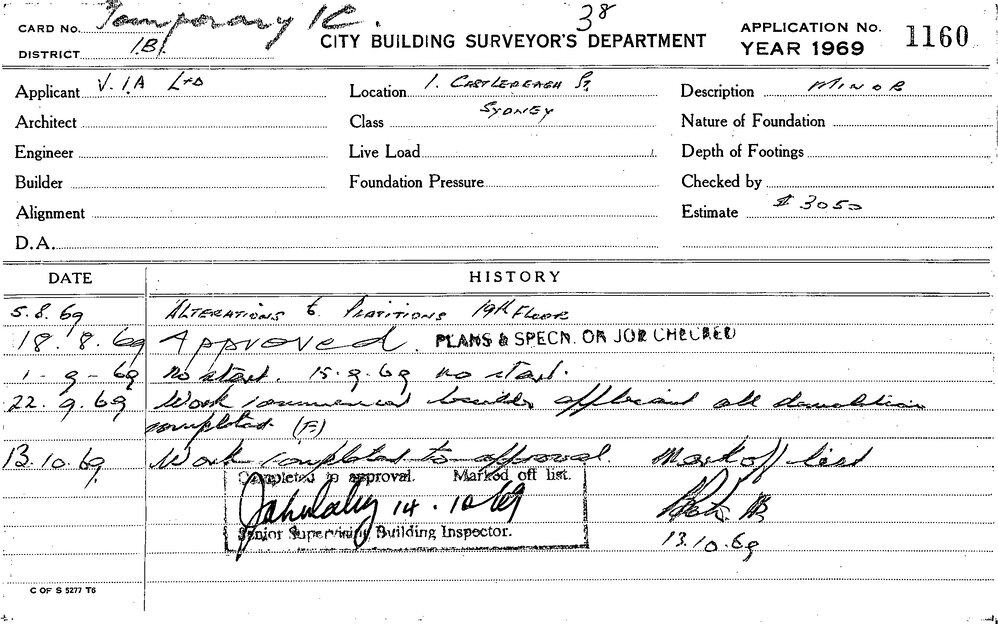 CARD No. Temporary 1C.
38
DISTRICT 1B/.
CITY BUILDING SURVEYOR'S DEPARTMENT
APPLICATION No. 1160
YEAR 1969
Applicant V.I.A LTD
Location 1. CASTLEREAGH St.
SYDNEY
Description MINOR
Architect
Class
Nature of Foundation
Engineer
Live Load
Depth of Footings
Builder
Foundation Pressure
Checked by
Alignment
Estimate $ 3050
D.A.
DATE HISTORY
5.8.69 ALTERATIONS to PARTITIONS 19th FLOOR
18.8.69 Approved. PLANS & SPECN. OR JOB CHECKED
1-9-69 no start. 15.9.69 no start.
22.9.69 Work commenced builder applicant all demolition
completed. (F.)
13.10.69 Work completed to approval. Mark off list
Completed to approval. Marked off list.
14.10.69
Senior Supervising Building Inspector.
13.10.69
C OF S 5277 T6